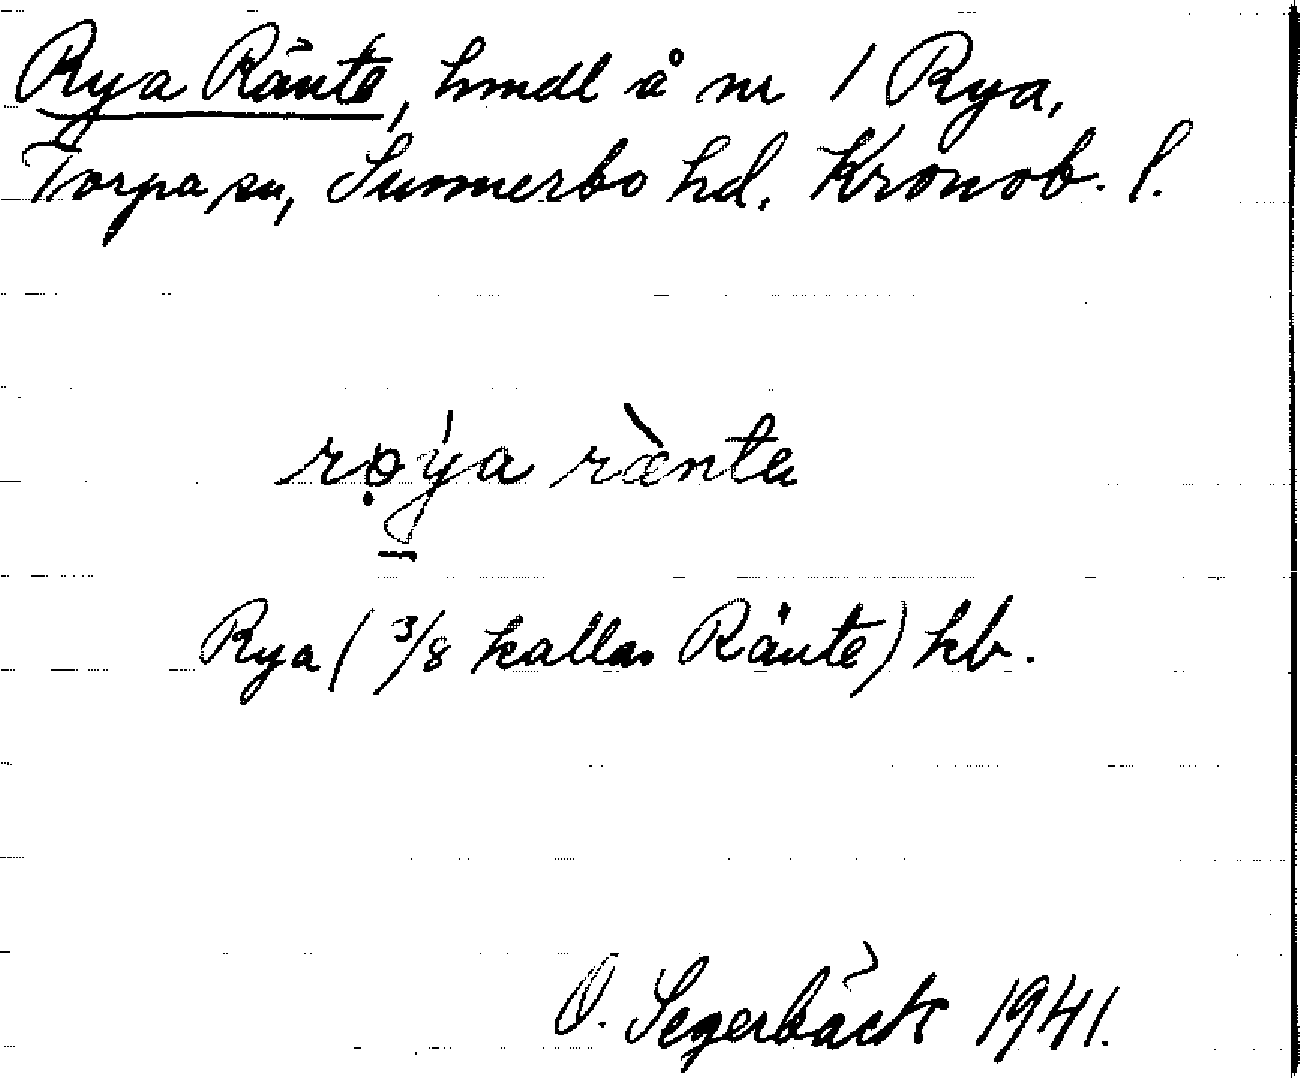 Rya Ränte, hmdl å nr 1 Rya,
Torpa sn, Sunnerbo hd. Kronob. l.
rø̣ýa rænta
Rya (3/8 kallas Ränte) kb.
O. Segerbäck 1941.